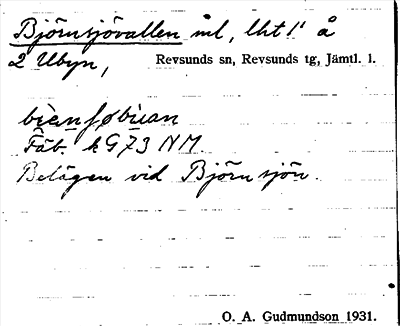 Björnsjövallen inl, lht 1' å
2 Ubyn, Revsunds sn, Revsunds tg, Jämtl. l.
Fäb. k G73 NM.
Belägen vid Björnsjön.
O. A. Gudmundson 1931.